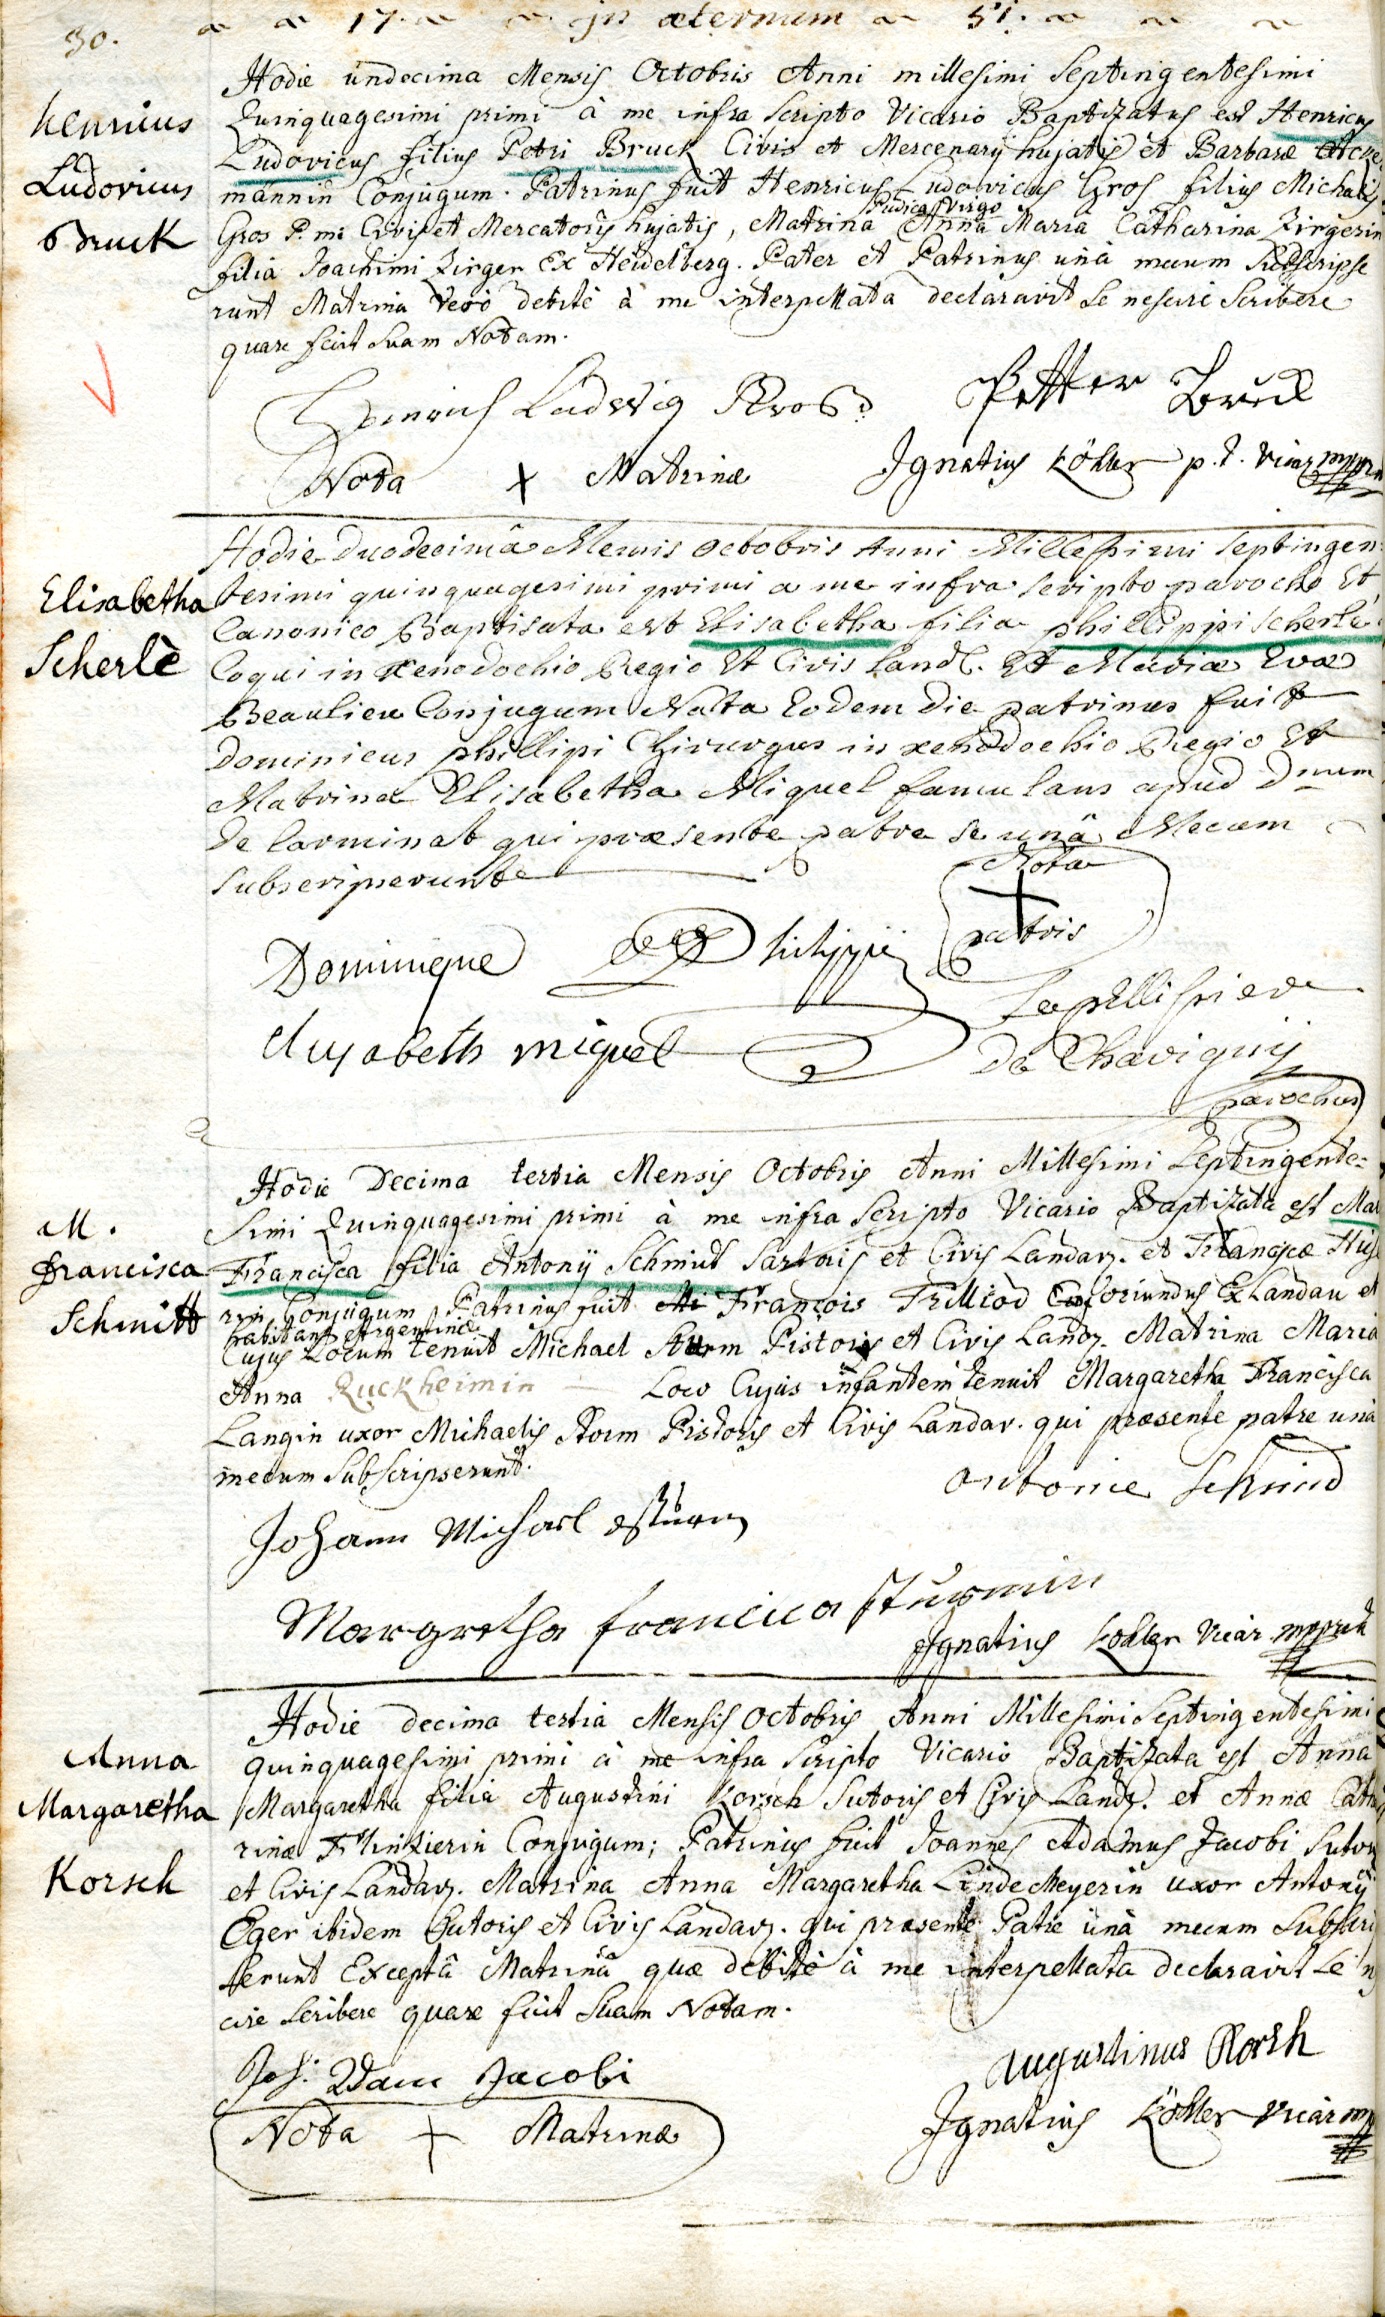 30.
17. in æternum 51.
Henricus
Ludovicus
Bruck
Hodie undecima Mensis Octobris Anni millesimi Septingentesimi
Quinquagesimi primi à me infra scripto Vicario Baptizatus est Henricus
Ludovicus filius Petri Bruck Civis et Mercenarij hujatis et Barbaræ
mannin Conjugum. Patrinus fuit Henricus Ludovicus Gros filius Michaelis
Pudica Virgo
Gros P. mi Civis et Mercatoris hujatis, Matrina Anna Maria Catharina Zirgerin
filia Joachimi Zirger Ex Heidelberg. Pater et Patrinus unà mecum Subscripse
runt Matrina Verò debitè à me interpellata declaravit se nescire Scribere
quare fecit suam Notam.
Heinrich Ludwig Kros
Petter Bruck
Nota X Matrinæ
Ignatius Köhler p. t. Vicar mppria
Elisabetha
Scherlè
Hodie duodecimâ Mensis octobris Anni Millesimi Septingen:
tesimi quinquagesimi primi a me infra scripto parocho Et
Canonico Baptisata est Elisabetha filia phillippi Scherlè
Coqui in xenodochio Regio Et Civis Land. Et Mariæ Evæ
Beaulieu Conjugum Nata Eodem die patrinus fuit
Dominicus phillipi Chirurgus in xenodochio Regio Et
Matrina Elisabetha Miquel famulans apud Dnum
De Carminat qui præsente patre se unâ Mecum
Subscripserunt
Nota
+
patris
Dominique Philippi
Elysabeth miquel
Lapellisriere
De Chavigny
parochus
M.
Francisca
Schmitt
Hodie Decima tertia Mensis Octobris Anni Millesimi Septingente=
simi Quinquagesimi primi à me infra scripto Vicario Baptizata est Mar
Francisca filia Antonij Schmidt Sartoris et Civis Landav. et Franciscæ
rin Conjugum Patrinus fuit François Trilliod oriundus Ex Landau et
habitans Argentinæ
Cujus Locum tenuit Michael Sturm Pistoris et Civis Landav. Matrina Maria
Anna Ruckheimin Loco Cujus infantem tenuit Margaretha Francisca
Langin uxor Michaelis Storm Pistoris et Civis Landav. qui præsente patre unà
mecum Subscripserunt.
Antonie Schmid
Johann Michael Sturm
Margretha francica Sturmin
Ignatius Köhler Vicar mppria
Anna
Margaretha
Korsch
Hodie decima tertia Mensis Octobris Anni Millesimi Septingentesimi
quinquagesimi primi à me infra scripto Vicario Baptizata est Anna
Margaretha filia Augustini Korsch Sutoris et Civis Landav. et Annæ Catha
rinæ Flinkierin Conjugum; Patrinus fuit Joannes Adamus Jacobi Sutor
et Civis Landav. Matrina Anna Margaretha LindeMeyerin uxor Antonij
Eger ibidem Sutoris et Civis Landav. qui præsente Patre unà mecum Subscri
pserunt Exceptâ Matrinâ quæ debitè à me interpellata declaravit se nes
cire scribere quare fecit suam Notam.
Joh. Adam Jacobi
Augustinus Korsh
Nota + Matrinæ
Ignatius Köhler Vicar mp